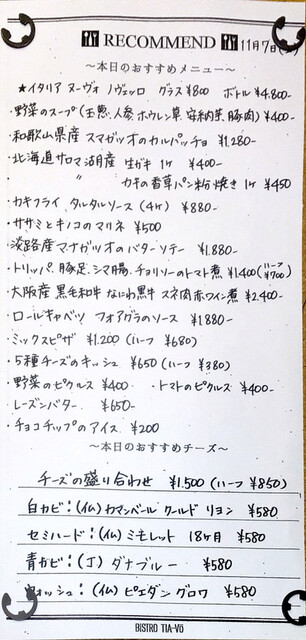 RECOMMEND 11月7日
〜本日のおすすめメニュー〜
★イタリア ヌーヴォ ノヴェッロ グラス¥800 ボトル¥4.800-
・野菜のスープ(玉葱、人参、ホウレン草 安納芋、豚肉)¥400-
・和歌山県産 スマガツオのカルパッチョ ¥1,280-
・北海道サロマ湖産 生ガキ 1ケ ¥400-
・ 〃 カキの香草パン粉焼き 1ケ ¥450
・カキフライ タルタルソース(4ケ) ¥880-
・ササミとキノコのマリネ ¥500
・淡路産マナガツオのバターソテー ¥1.880-
・トリッパ、豚足、シマ腸、チョリソーのトマト煮 ¥1400(ハーフ¥700)
・大阪産 黒毛和牛 なにわ黒牛 スネ肉赤ワイン煮 ¥2.400-
・ロールキャベツ フォアグラのソース ¥1880-
・ミックスピザ ¥1.200(ハーフ ¥680)
・5種チーズのキッシュ ¥650(ハーフ ¥380)
・野菜のピクルス ¥400 ・トマトのピクルス ¥400-
・レーズンバター ¥650-
・チョコチップのアイス ¥200
〜本日のおすすめチーズ〜
チーズの盛り合わせ ¥1.500(ハーフ ¥850)
白カビ:(仏)カマンベール クールド リヨン ¥580
セミハード:(仏)ミモレット 18ヶ月 ¥580
青カビ:(丁)ダナブルー ¥580
ウォッシュ:(仏)ピエダングロワ ¥580
BISTRO TIA-Vö